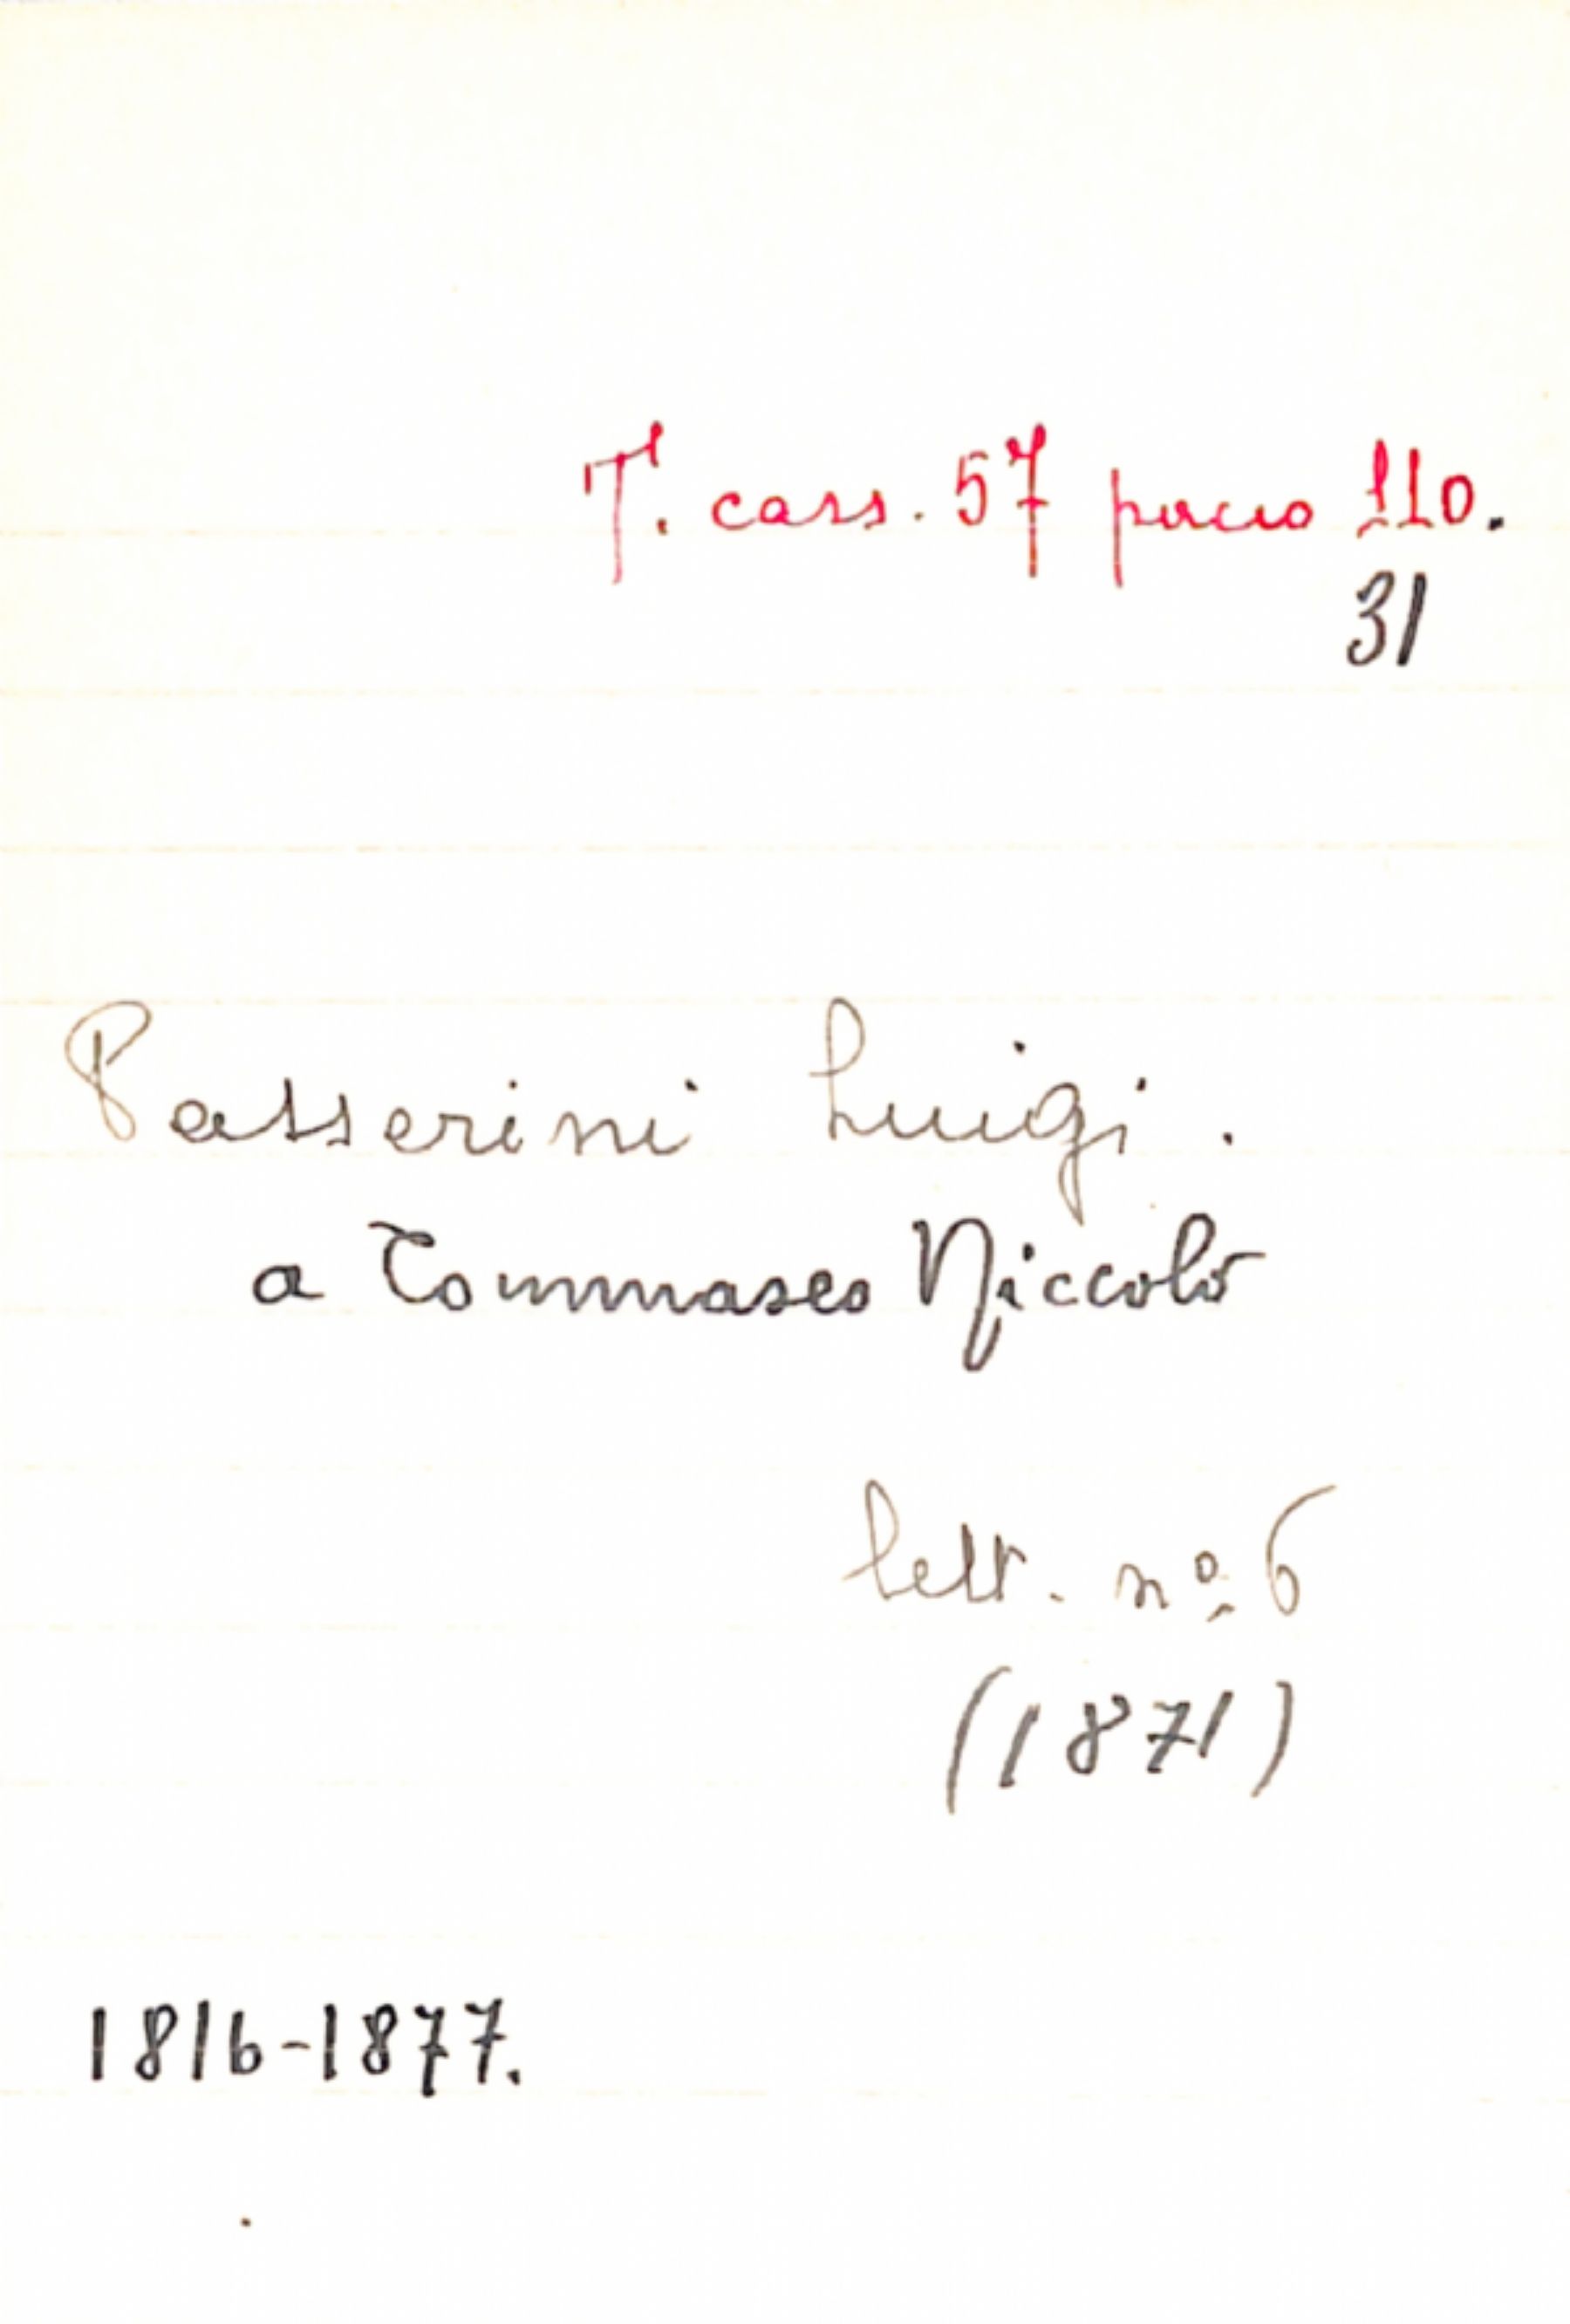 T. cass. 57 pacco 110.
31
Passerini Luigi.
a Tommaseo Niccolò
lett. nº 6
(1871)
1816-1877.